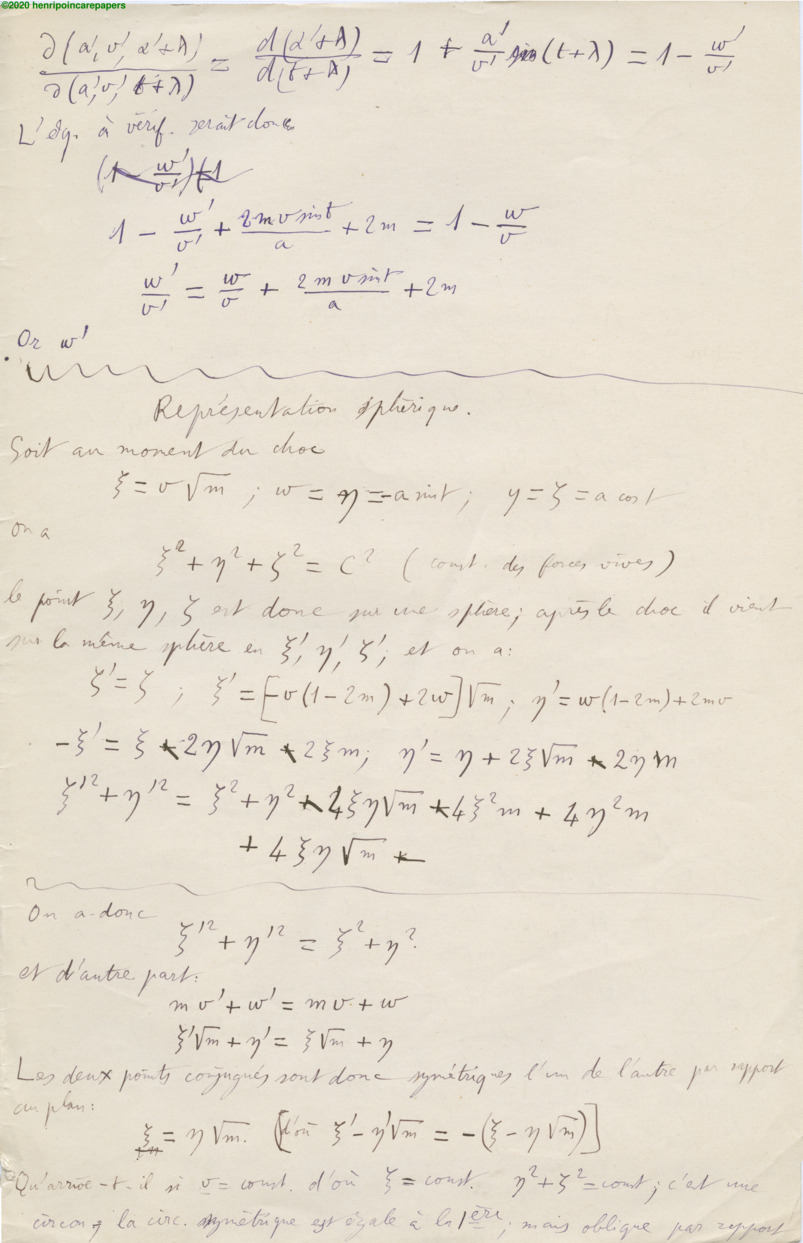 ©2020 henripoincarepapers
∂(a', v', α'+λ) / ∂(a', v', t+λ) = d(α'+λ) / d(t+λ) = 1 + a'/v' sin(t+λ) = 1 − w'/v'
L'éq. à vérif. serait donc
(1 − w'/v')(1
1 − w'/v' + 2mv sin t / a + 2m = 1 − w/v
w'/v' = w/v + 2 m v sin t / a + 2m
Or w'
Représentation sphérique.
Soit au moment du choc
ξ = v √m ; w = η = −a sin t ; y = ζ = a cos t
on a
ξ² + η² + ζ² = C² (const. des forces vives)
le point ξ, η, ζ est donc sur une sphère; après le choc il vient
sur la même sphère en ξ', η', ζ'; et on a:
ζ' = ζ ; ξ' = [−v(1−2m) + 2w]√m ; η' = w(1−2m) + 2mv
−ξ' = ξ − 2η√m − 2ξm; η' = η + 2ξ√m − 2ηm
ξ'² + η'² = ξ² + η² − 4ξη√m − 4ξ²m + 4η²m
+ 4ξη√m −
On a donc
ξ'² + η'² = ξ² + η².
et d'autre part:
m v' + w' = m v + w
ξ'√m + η' = ξ√m + η
Les deux points conjugués sont donc symétriques l'un de l'autre par rapport
au plan:
ξ = η √m. [d'où ξ' − η'√m = −(ξ − η√m)]
Qu'arrive-t-il si v = const. d'où ξ = const. η² + ζ² = const; c'est une
circonf. la circ. symétrique est égale à la 1ère; mais oblique par rapport